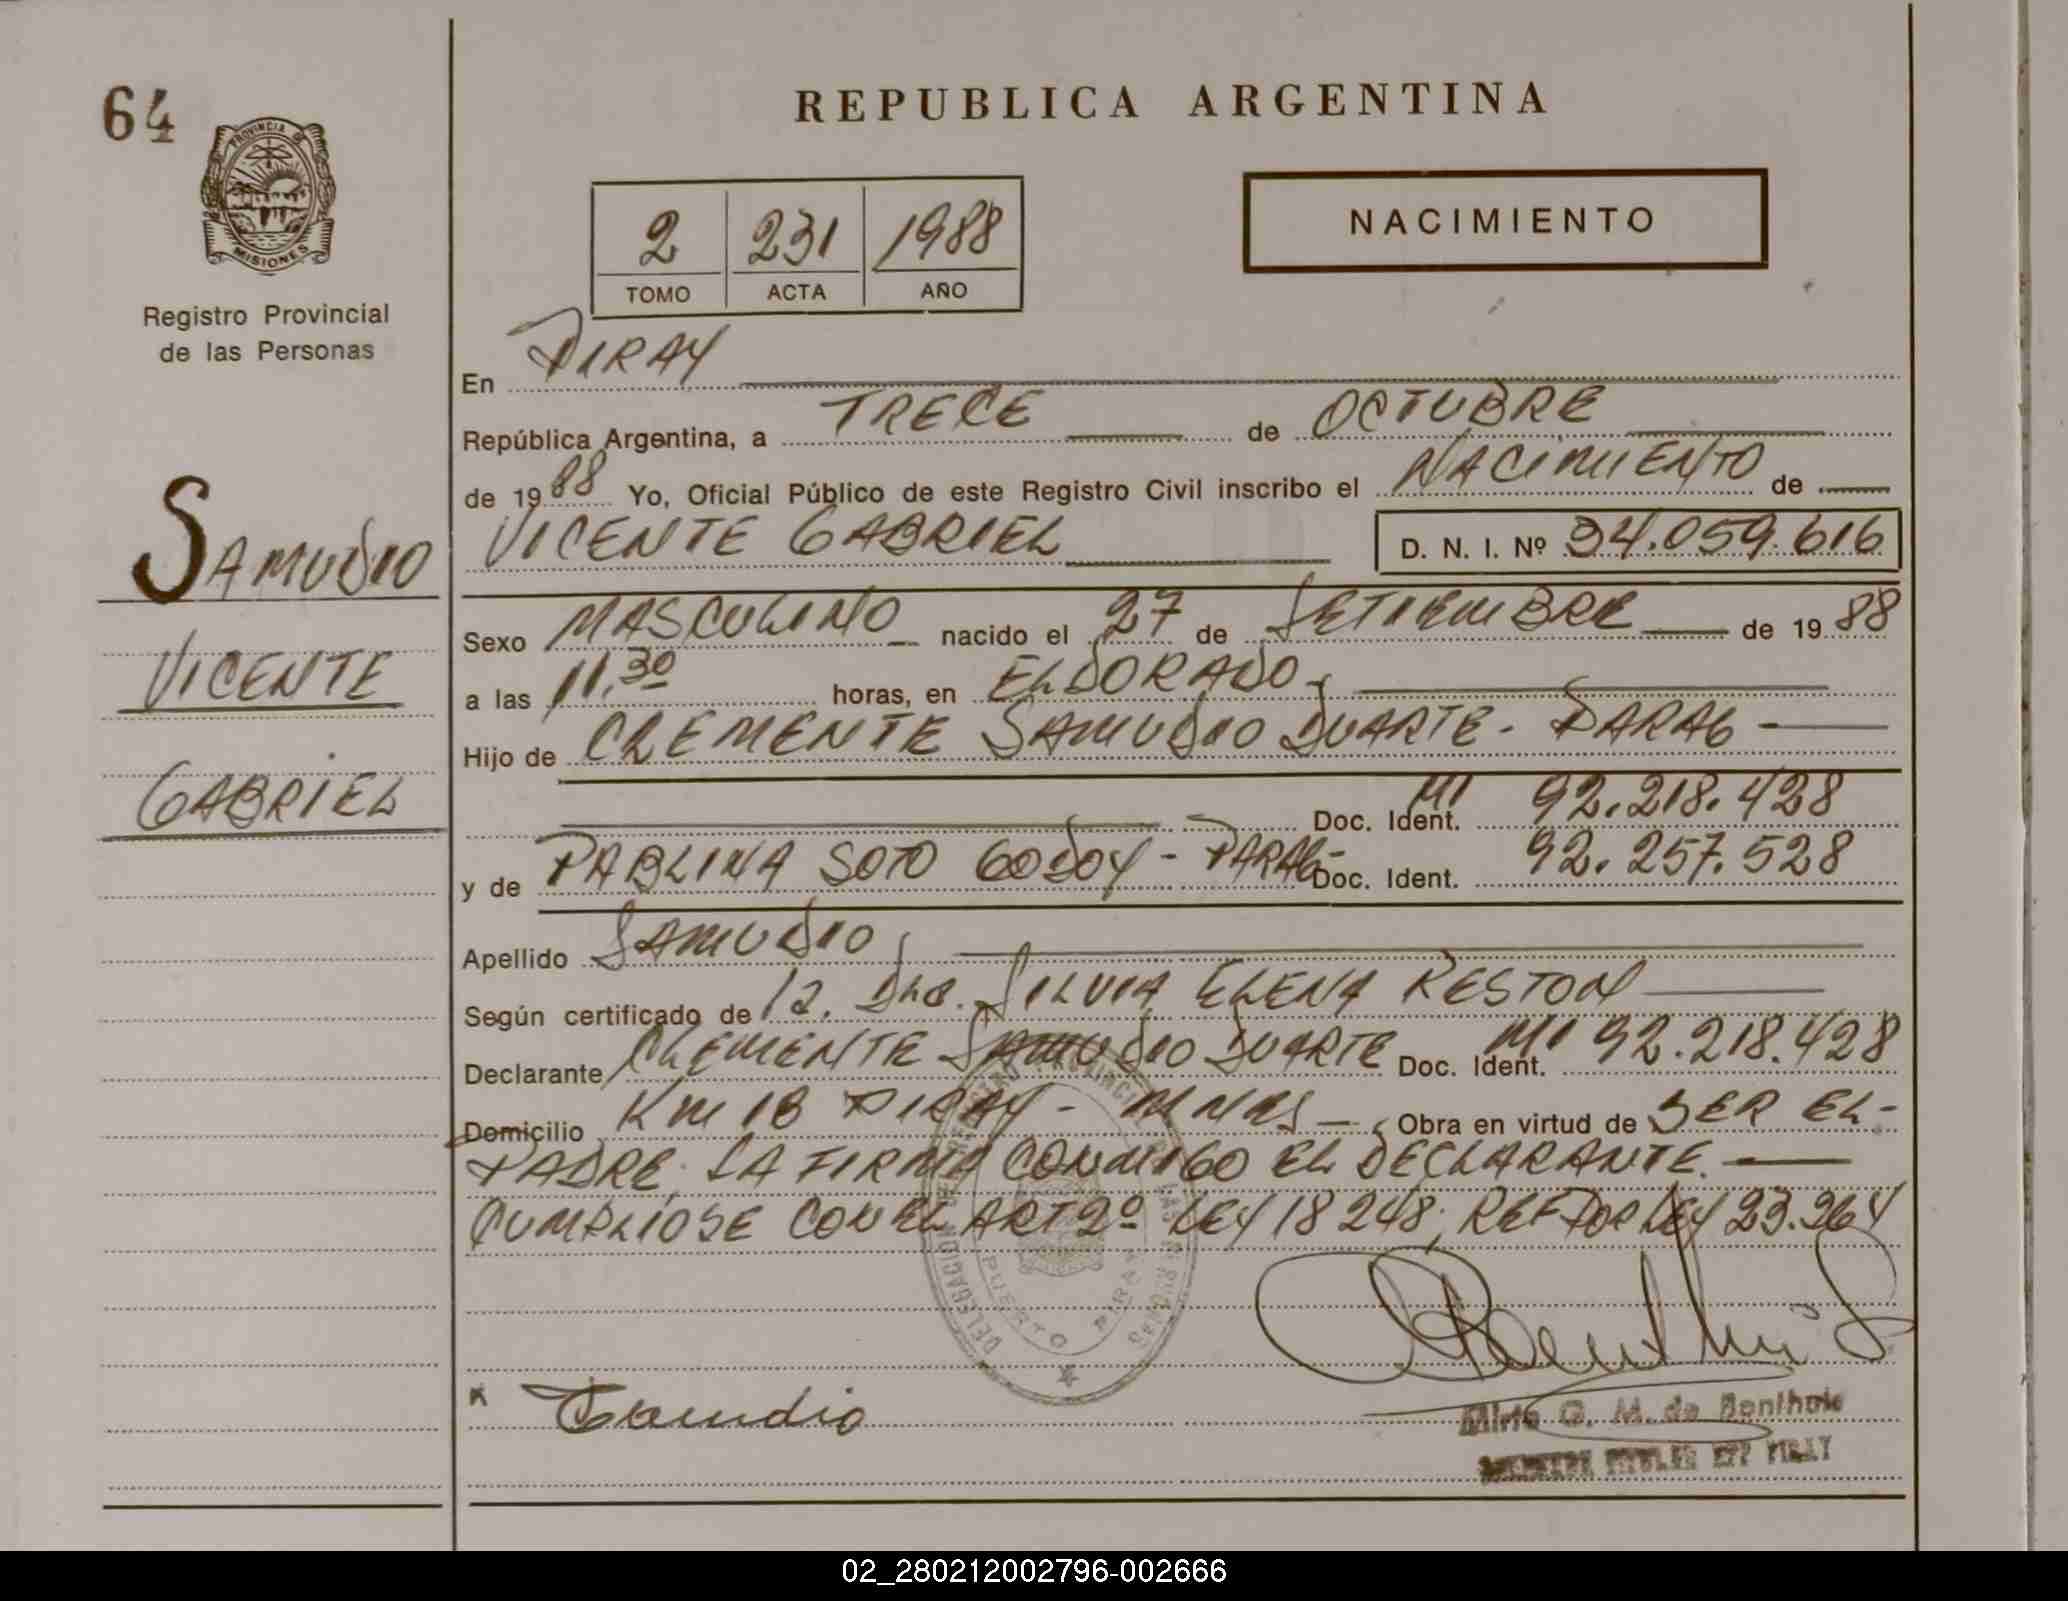 64
REPUBLICA ARGENTINA
PROVINCIA DE
MISIONES
Registro Provincial
de las Personas
2 231 1988
TOMO ACTA AÑO
NACIMIENTO
En PIRAY
República Argentina, a TRECE de OCTUBRE
de 1988 Yo, Oficial Público de este Registro Civil inscribo el NACIMIENTO de
VICENTE GABRIEL D. N. I. Nº 34.059.616
SAMUDIO
VICENTE
GABRIEL
Sexo MASCULINO nacido el 27 de SETIEMBRE de 1988
a las 11,30 horas, en ELDORADO
Hijo de CLEMENTE SAMUDIO DUARTE - PARAG
Doc. Ident. MI 92.218.428
y de PABLINA SOTO GODOY - PARAG- Doc. Ident. 92.257.528
Apellido SAMUDIO
Según certificado de la. Dra. SILVIA ELENA RESTON
Declarante CLEMENTE SAMUDIO DUARTE Doc. Ident. MI 92.218.428
Domicilio Km 18 PIRAY - MNES Obra en virtud de SER EL-
PADRE. LA FIRMA CONMIGO EL DECLARANTE.
CUMPLIOSE CON EL ART 2º LEY 18248, REF POR LEY 23.264
DELEGACION DEL REGISTRO PROVINCIAL DE LAS PERSONAS
PUERTO PIRAY
Samudio
Mirta G. M. de Benthuis
02_280212002796-002666